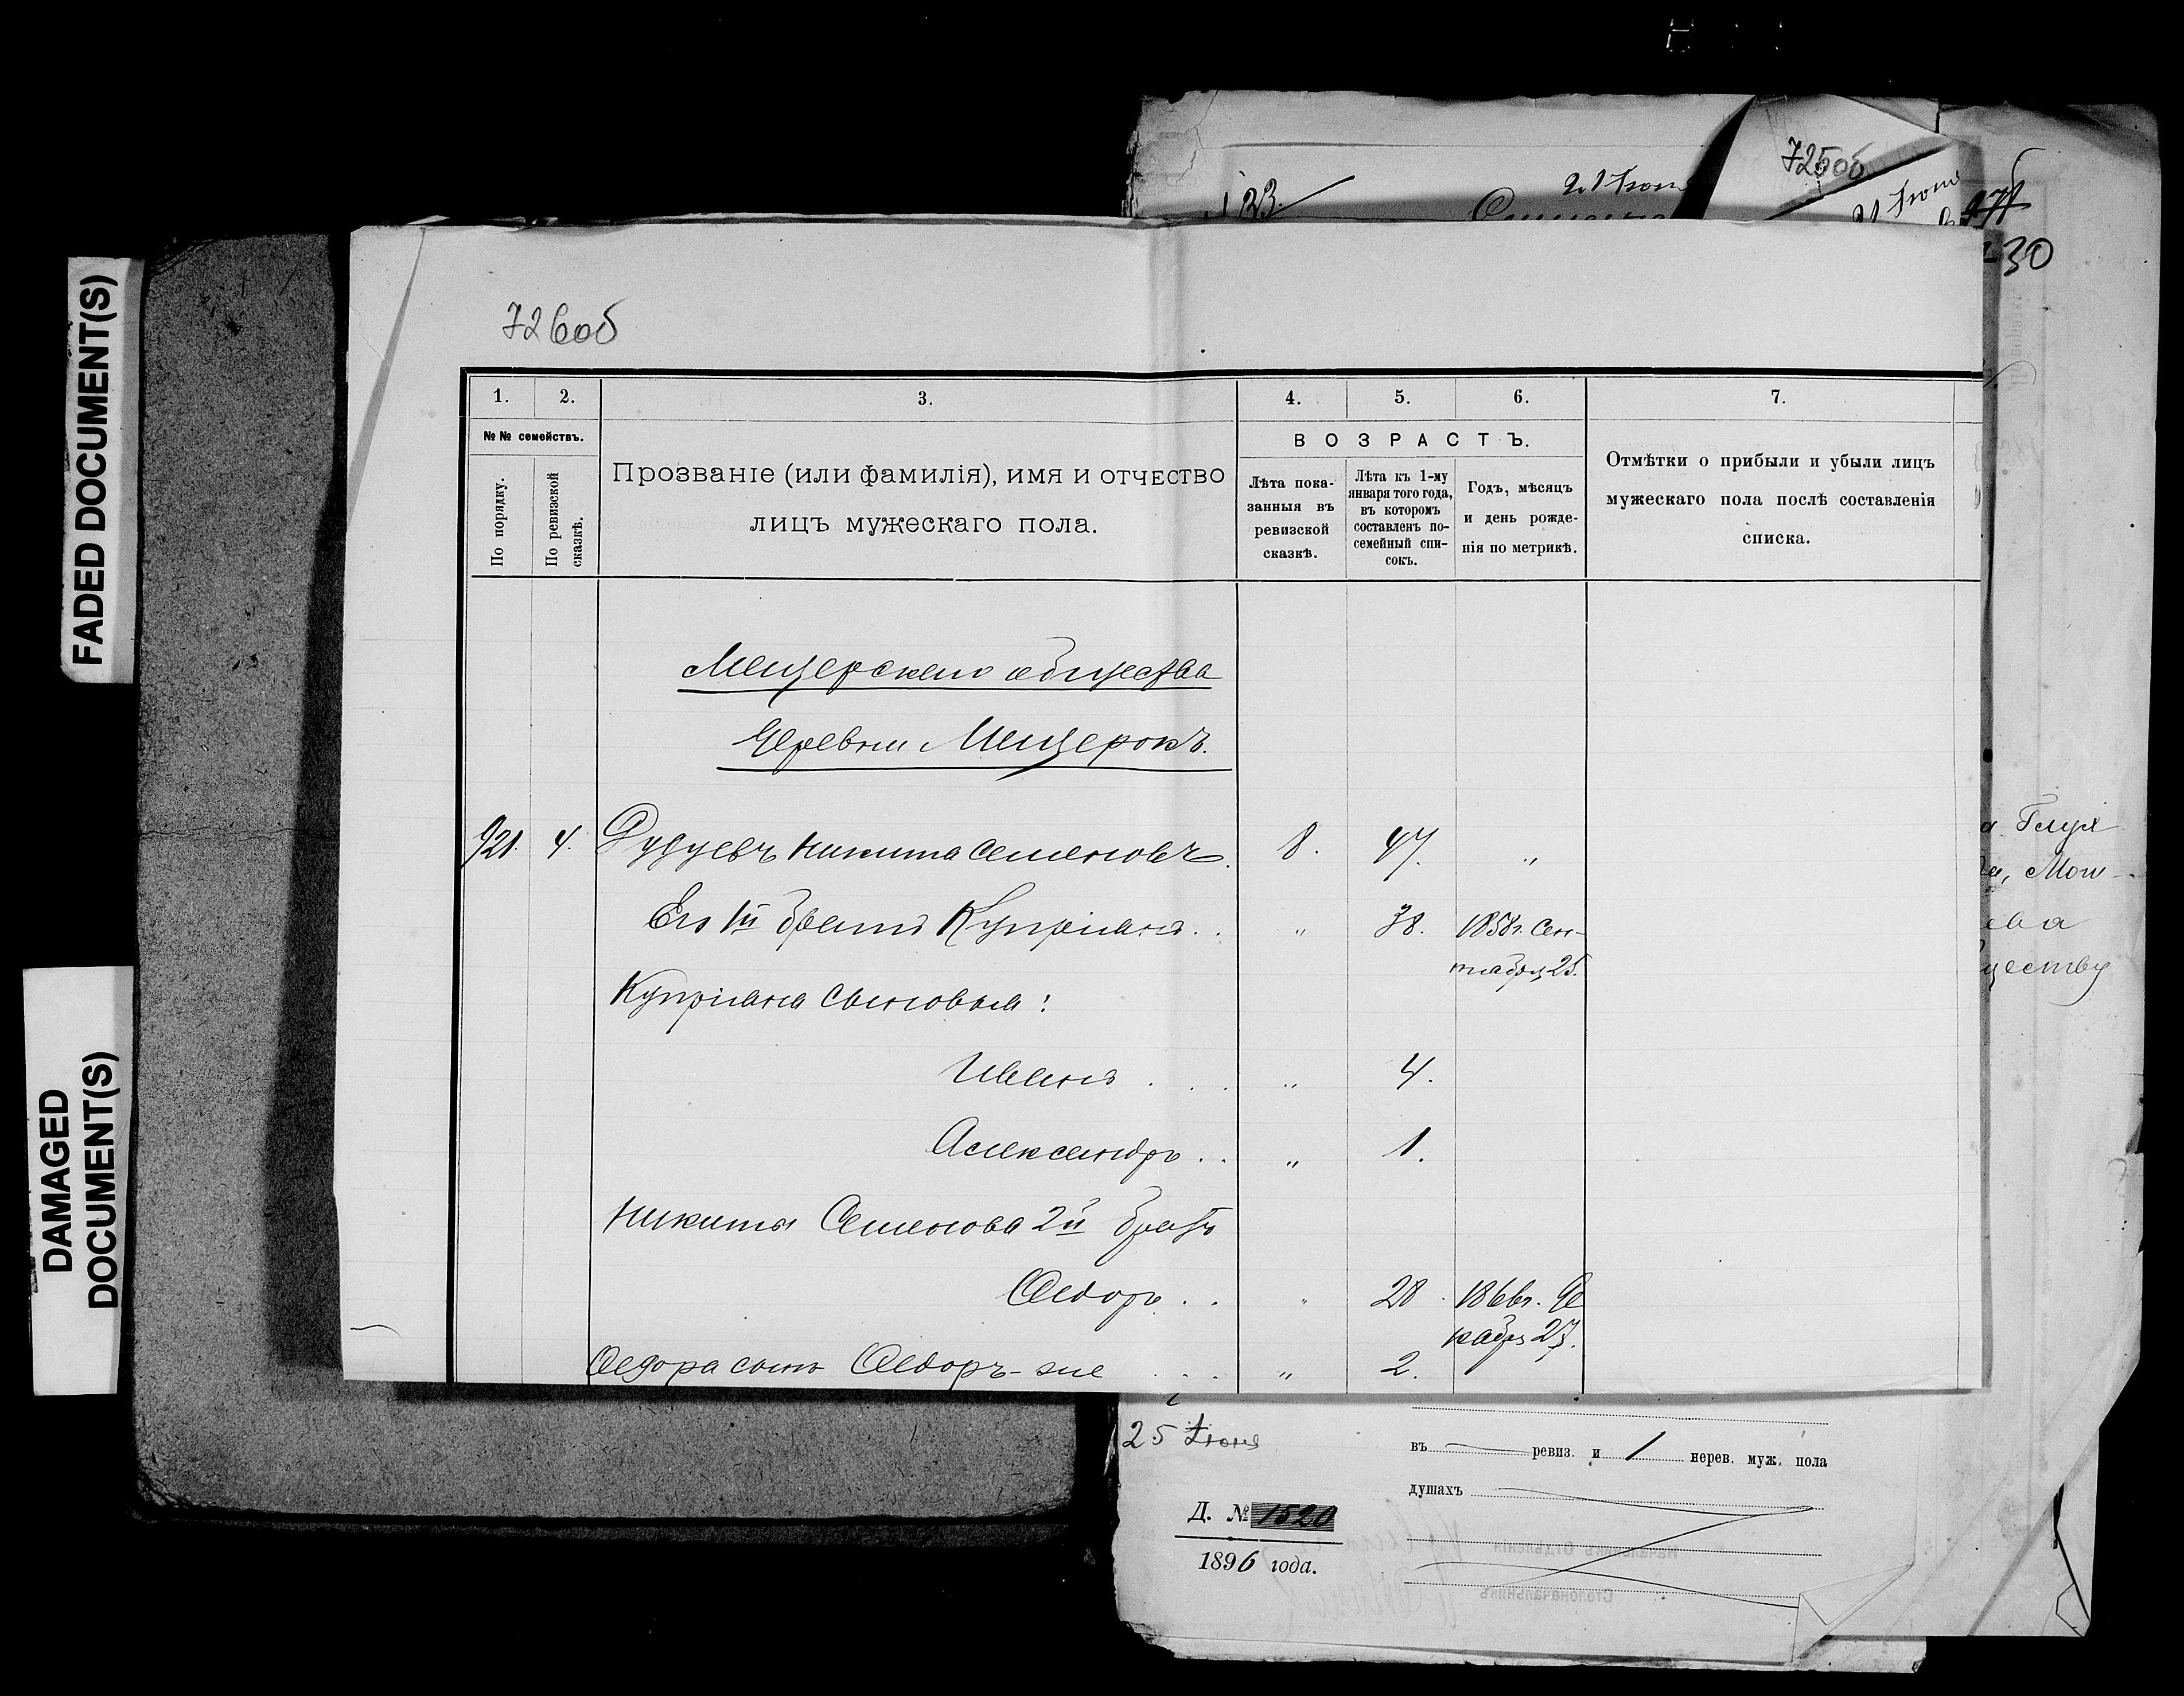 FADED DOCUMENT(S)
DAMAGED
DOCUMENT(S)
725об
133.
30
726об
1. 2. 3. 4. 5. 6. 7.
№№ семействъ.
По порядку.
По ревизской сказкѣ.
Прозваніе (или фамилія), имя и отчество
лицъ мужескаго пола.
ВОЗРАСТЪ.
Лѣта пока-
занныя въ
ревизской
сказкѣ.
Лѣта къ 1-му
января того года,
въ которомъ
составленъ по-
семейный спи-
сокъ.
Годъ, мѣсяцъ
и день рожде-
нія по метрикѣ.
Отмѣтки о прибыли и убыли лицъ
мужескаго пола послѣ составленія
списка.
Мещерскаго общества
Деревни Мещерокъ.
921. 4. Никита Семеновъ. 8. 47. "
Его 1й братъ Купріанъ. . " 38. 1858г. Сен-
тября 25.
Купріана сыновья:
Иванъ . . . " 4.
Александръ . . " 1.
Никиты Семенова 2й братъ
Ѳедоръ . . " 28. 1866г. Де
кабря 27.
Ѳедора сынъ Ѳедоръ-же . . . " 2.
ества
ществу
25 Іюня
въ ревиз. и 1 нерев. муж. пола
душахъ
Д. № 1520
1896 года.
Начальникъ Отдѣленія
Столоначальникъ